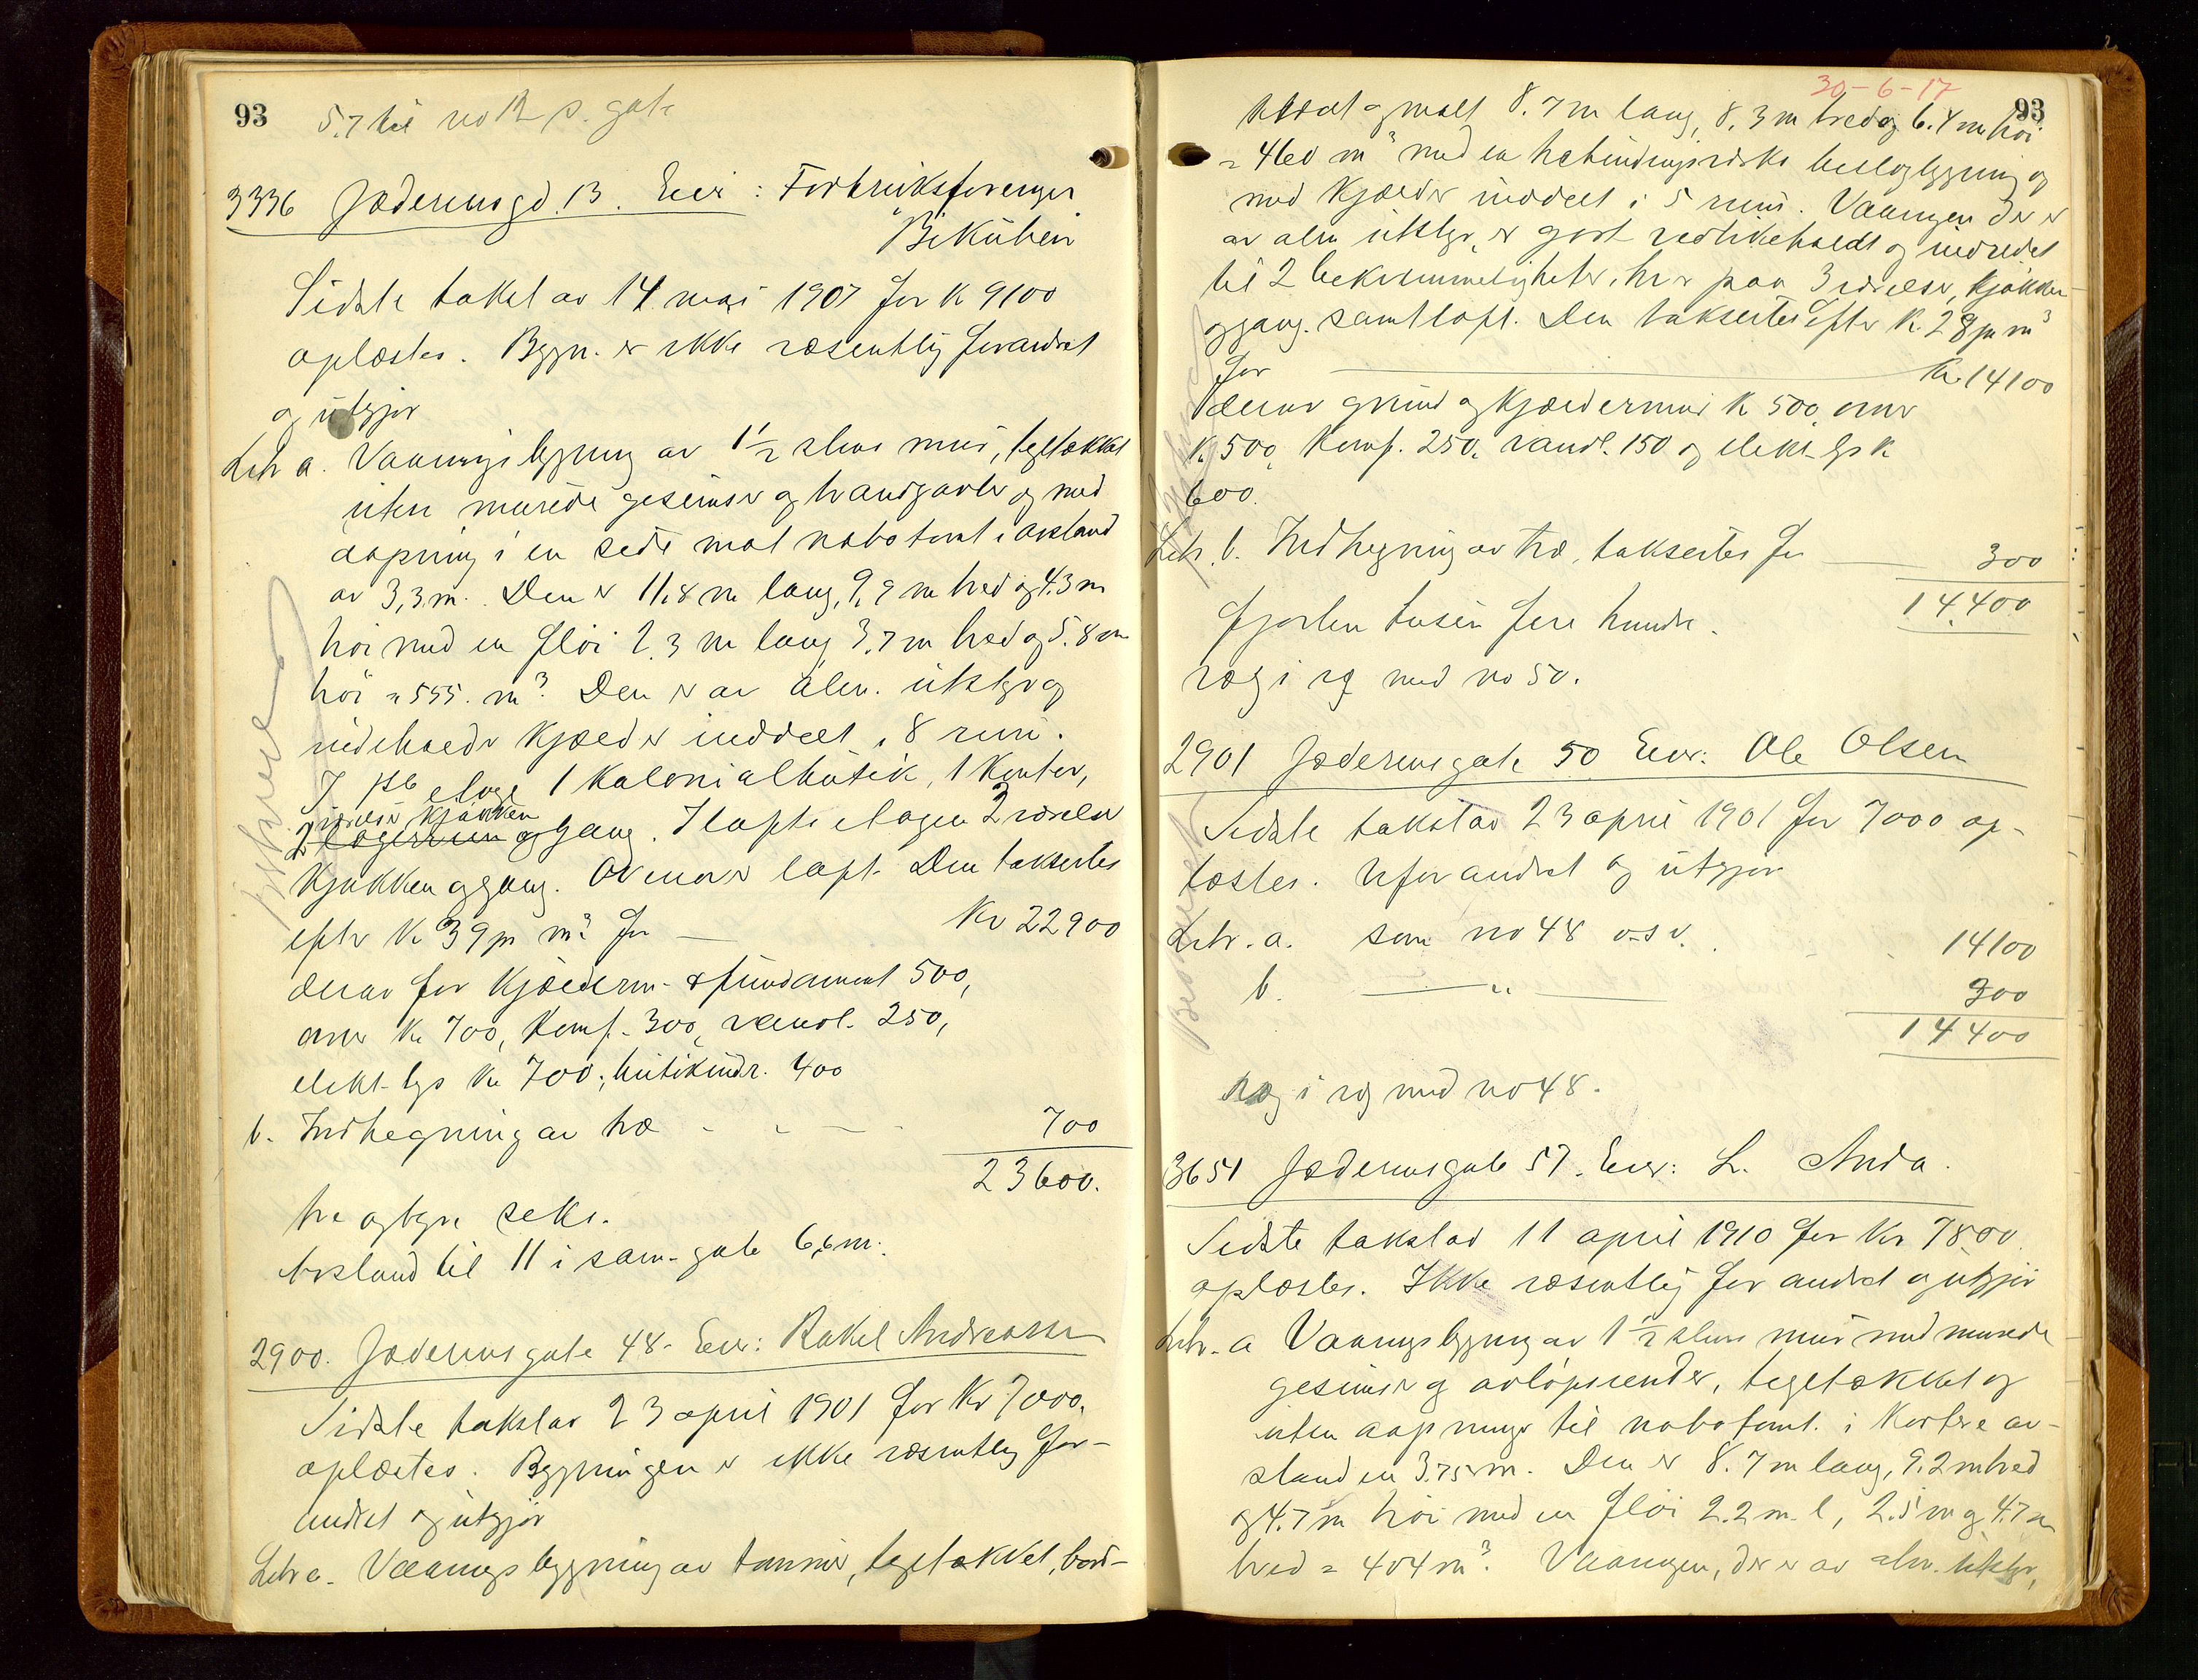 93
5.7 til no
3336 Jæderensgd. 13. Eier: Forbruksforenger
"Bikuben
Sidste takst av 14 mai 1907 for K 9100
oplæstes. Bygn. er ikke væsentlig forandret
og utgjør
Litr a. Vaaningsbygning av 1 1/2 stens mur, tegltækket
uten murede gesimser og brandgavler og med
aapning i en side mot nabotomt i avstand
av 3,3 m. Den er 11,8 m lang, 9,9 m bred og 4.3 m
høi med en fløi 2.3 m lang 3.7 m bred og 5.8 m
høi = 555. m³. Den er av alm. utstyr og
indeholder kjælder inddelt i 8 rum.
I 1ste etage 1 kolonialbutik, 1 kontor,
2 værelser kjøkken
lagerrum og gang. I loftsetagen 2 værelser
kjøkken og gang. Ovenover loft. Den takseres
efter K 39 pr m³ for — Kr 22900
derav for kjælderm. & fundament 500,
ovner K 700, komf. 300, vandl. 250,
elekt. lys Kr 700; butikindr. 400
b. Indhegning av træ - - - 700
23600.
tre og tyve seks.
Avstand til 11 i sam. gate 6,6 m.
2900. Jæderensgate 48. Eier: Rakel Andreassen
Sidste takst av 23 april 1901 for Kr 7000.
oplæstes. Bygningen er ikke væsentlig for-
andret og utgjør
Litr a. Vaaningsbygning av tømmer, tegltækket, bord-
30-6-17
93
klædt og malt 8.7 m lang, 8.3 m bred og 6.4 m høi
= 460 m³ med en bebyggning og
med kjælder inddelt i 5 rum. Vaaningen der er
av alm utstyr, er godt vedlikeholdt og indredet
til 2 bekvemmeligheter, hver paa 3 værelser, kjøkken
og gang. samt loft. Den takseres efter K 28 pr m³
for — Kr. 14100
derav grund og kjældermur K 500, ovner
K 500, komf. 250, vandl. 150 og elekt. lys K
600.
Litr. b. Indhegning av træ, takseres for — 300
14.400
fjorten tusen fire hundre.
væg i væg med no 50.
2901 Jæderensgate 50 Eier: Ole Olsen
Sidste takst av 23 april 1901 for 7000 op-
læstes. Uforandret og utgjør
Litr. a. som no 48 o.s.v. . 14100
b. — " — 300
14400
væg i væg med no 48.
3651 Jæderensgate 57. Eier: L. Anda.
Sidste takst av 11 april 1910 for Kr 7800
oplæstes. Ikke væsentlig forandret og utgjør
Litr. a Vaaningsbygning av 1 1/2 stens mur med murede
gesimser og avløpsrender, tegltækket og
uten aapninger til nabotomt. i kortere av-
stand en 3.75 m. Den er 8.7 m lang, 9.2 m bred
og 4.7 m høi med en fløi 2.2 m l, 2.5 m og 4.7 m
bred = 404 m³. Vaaningen, der er av alm. utstyr,